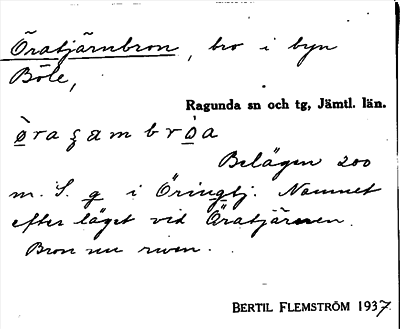 Öratjärnbron, bro i byn
Böle,
Ragunda sn och tg, Jämtl. län.
Belägen 200
m. S. g i Öringbj. Namnet
efter läget vid Öratjärnen.
Bron nu riven.
BERTIL FLEMSTRÖM 1937.